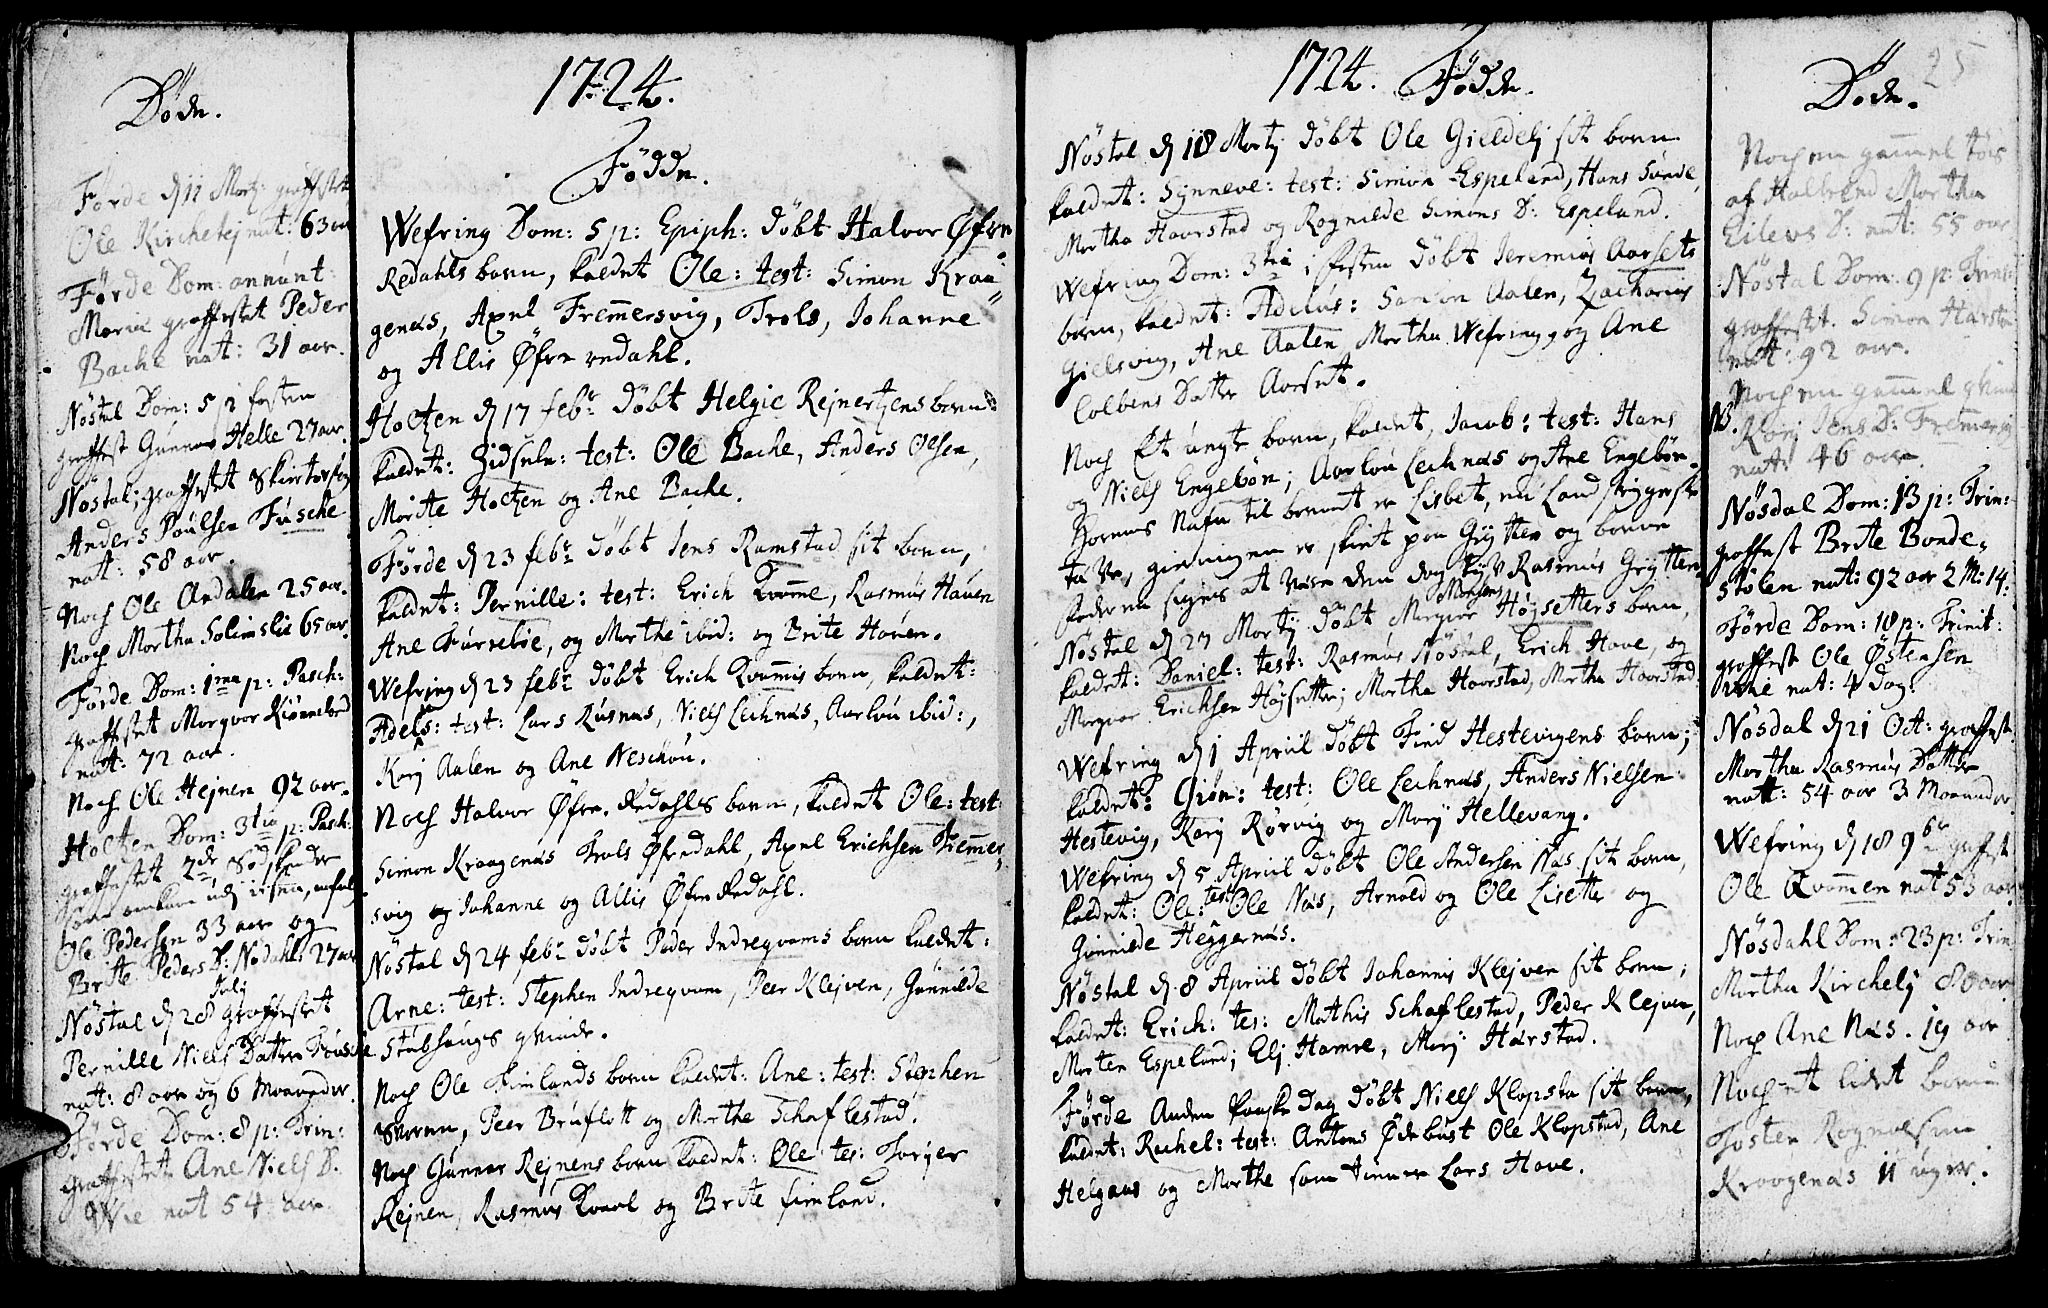 Döde.
Förde d 11 Martj graffestet
Ole Kirchelej nat: 63 aar
Förde Dom: annunt:
Mariæ graffestet Peder
Bache nat: 31 aar.
Nöstal Dom: 5 i fasten
graffest Gunnar Helle 27 aar.
Nöstal; graffestet Skiertorsdag
Anders Poulsen Fusche
nat: 58 aar.
Noch Ole Andalen 25 aar.
Noch Martha Solimslie 65 aar.
Förde Dom: 1ma p: Pasch:
graffestet Margvor Kiönnebord
nat: 72 aar.
Noch Ole Hejnen 92 aar.
Holten Dom: 3tia p: Pasch:
graffestet 2de Södskender
som omkom udj
Ole Pedersen 33 aar og
Brite Peders D: Nödahl: 27 aar
Nöstal d 28 July graffestet
Pernille Niels Datter Fousche
nat: 8 aar og 6 Maaneder.
Förde Dom: 8 p: Trin:
graffestet Ane Niels D.
Wie nat 54 aar
1724.
Födde.
Wefring Dom: 5 p: Epiph: döbt Halvor Øfre
Redahls barn, kaldet Ole: test: Simon Kraa
genæs, Axel Fremmersvig, Trols, Johanne
og Allis Øfre redahl.
Holtzen d 17 febr döbt Helgie Rejnertzens barn
kaldet: Zidsele: test: Ole Bache, Anders Olsen,
Marite Holtzen og Ane Bache.
Förde d 23 febr döbt Jens Ramstad sit barn,
kaldet: Pernille: test: Erich Kvamme, Rasmus Hauen
Ane Furrebøe, og Marthe ibid: og Brite Hauen.
Wefring d 23 febr döbt Erich Kvammis barn, kaldet:
Adels: test: Lars Rusnæs, Niels Lechnæs, Aarlou ibid:,
Karj Aalen og Ane Neschou.
Noch Halvor Øfre Redahls barn, kaldet Ole: test
Simon Kraagenæs Trols Øfredahl, Axel Erichsen Fremmer
svig og Johanne og Allis Øfre Redahl.
Nöstal d 24 febr döbt Peder Indreqvams barn kaldet:
Arne: test: Stephen Indreqvam, Peer Klejven, Gunnilde
Stubhougs qvinde.
Noch Ole Fimlands barn kaldet: Ane: test: Stephen
Moren, Peer Bruflott og Marthe Schaflestad.
Noch Gunnar Rejnens barn kaldet: Ole tes: Torger
Rejnen, Rasmus Kvaal og Brite fimland.
1724. Födde.
Nöstal d 18 Martj döbt Ole Gieldelj sit barn
kaldet: Synneve: test: Simon Espeland, Hans Sunde,
Martha Haarstad og Rognilde Simons D: Espeland.
Wefring Dom: 3tia i fasten döbt Jeremias Aarsets
barn, kaldet: Adelus: Samson Aalen, Zacharias
Gielsvig, Ane Aalen, Martha Wefring, og Ane
Colbens Datter Aarset.
Noch Et uægte barn, kaldet, Jacob: test: Hans
og Niels Engebøn; Aarlou Lechnæs og Ane Engebøn.
Horens Nafn til barnet er Lisbet, en Landstrygerske
ta Ve, gierningen er skeet paa Grytten og barne
faderen siges at være den dog Rasmus Grytten.
Nöstal d 27 Martij döbt Margvor Monsens Høgsetters barn,
kaldet: Daniel: test: Rasmus Nöstal, Erich Hove, og
Margvor Erichsen Høgsetter; Martha Haarstad, Martha Haarstad.
Wefring d 1 Apriil döbt Find Hestevigens barn;
kaldet: Giøn: test: Ole Lechnæs, Anders Nielsen
Hestevig, Karj Rørvig og Marj Hellevang.
Wefring d 5 Apriil döbt Ole Andersen Næs sit barn,
kaldet: Ole: test Ole Næs, Arnold og Ole Lisetter og
Gunnilde Heggernæs.
Nöstal d 8 Apriil döbt Johannis Klejven sit barn;
kaldet: Erich: tes: Mathis Schaflestad, Peder Klejven,
Morten Espeland; Elj Hamre, Marj Harstad.
Förde Anden Paaske Dag döbt Niels Klopsta sit barn,
kaldet: Rachel: test: Antons Ødebust Ole Klopstad, Ane
Helgaas og Marthe som tienner Lars Hove.
25
Döde.
Noch en gammel tøs
af Halbrend Martha
Eilevs D: nat: 55 aar
Nöstal Dom: 9 p: Trinit:
graffestet. Simon Harsta
natt: 92 aar.
Noch en gammel qvinde
NB. Karj Jens D: Fremmersvig
nat: 46 aar.
Nösdal Dom: 13 p: Trin:
graffest Brite Bonde,
Stölen nat: 92 aar 2 M: 14:
Förde Dom: 18 p: Trinit:
graffest Ole Østensen
Wie nat: 4 dag:
Nösdal d 21 Oct: graffest
Martha Rasmus Datter
natt: 54 aar 3 Maaneder
Wefring d 18 9br grafest
Ole Qvammen nat 53 aar
Nösdahl Dom: 23 p: Trin
Martha Kirchelj 80 aar
Noch Ane Næs. 19 aar
Noch et lidet barn
Tosten Rognalsen
Kraagenæs 11 uger.